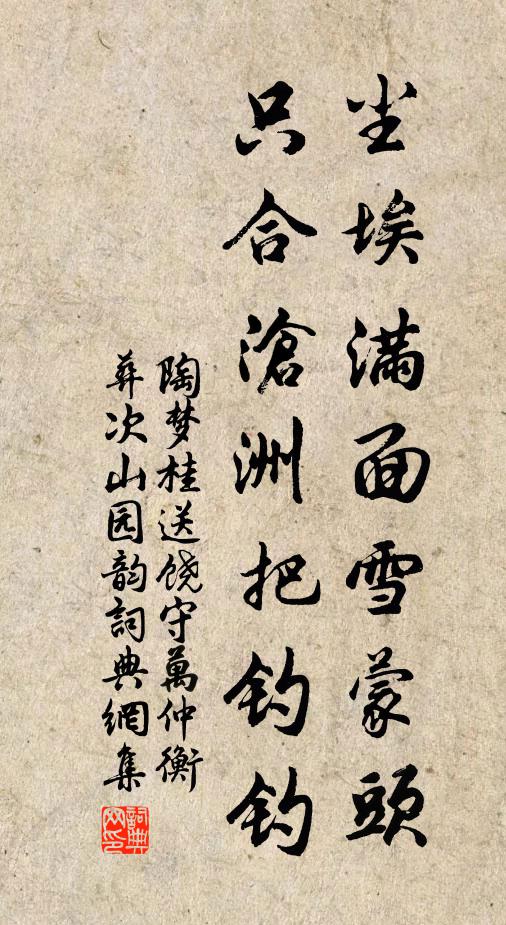 尘埃满面雪蒙頭
只合滄洲把钓钓
陶梦桂送饶守萬仲衡
彛次山园韵詞典網集
詞典网印